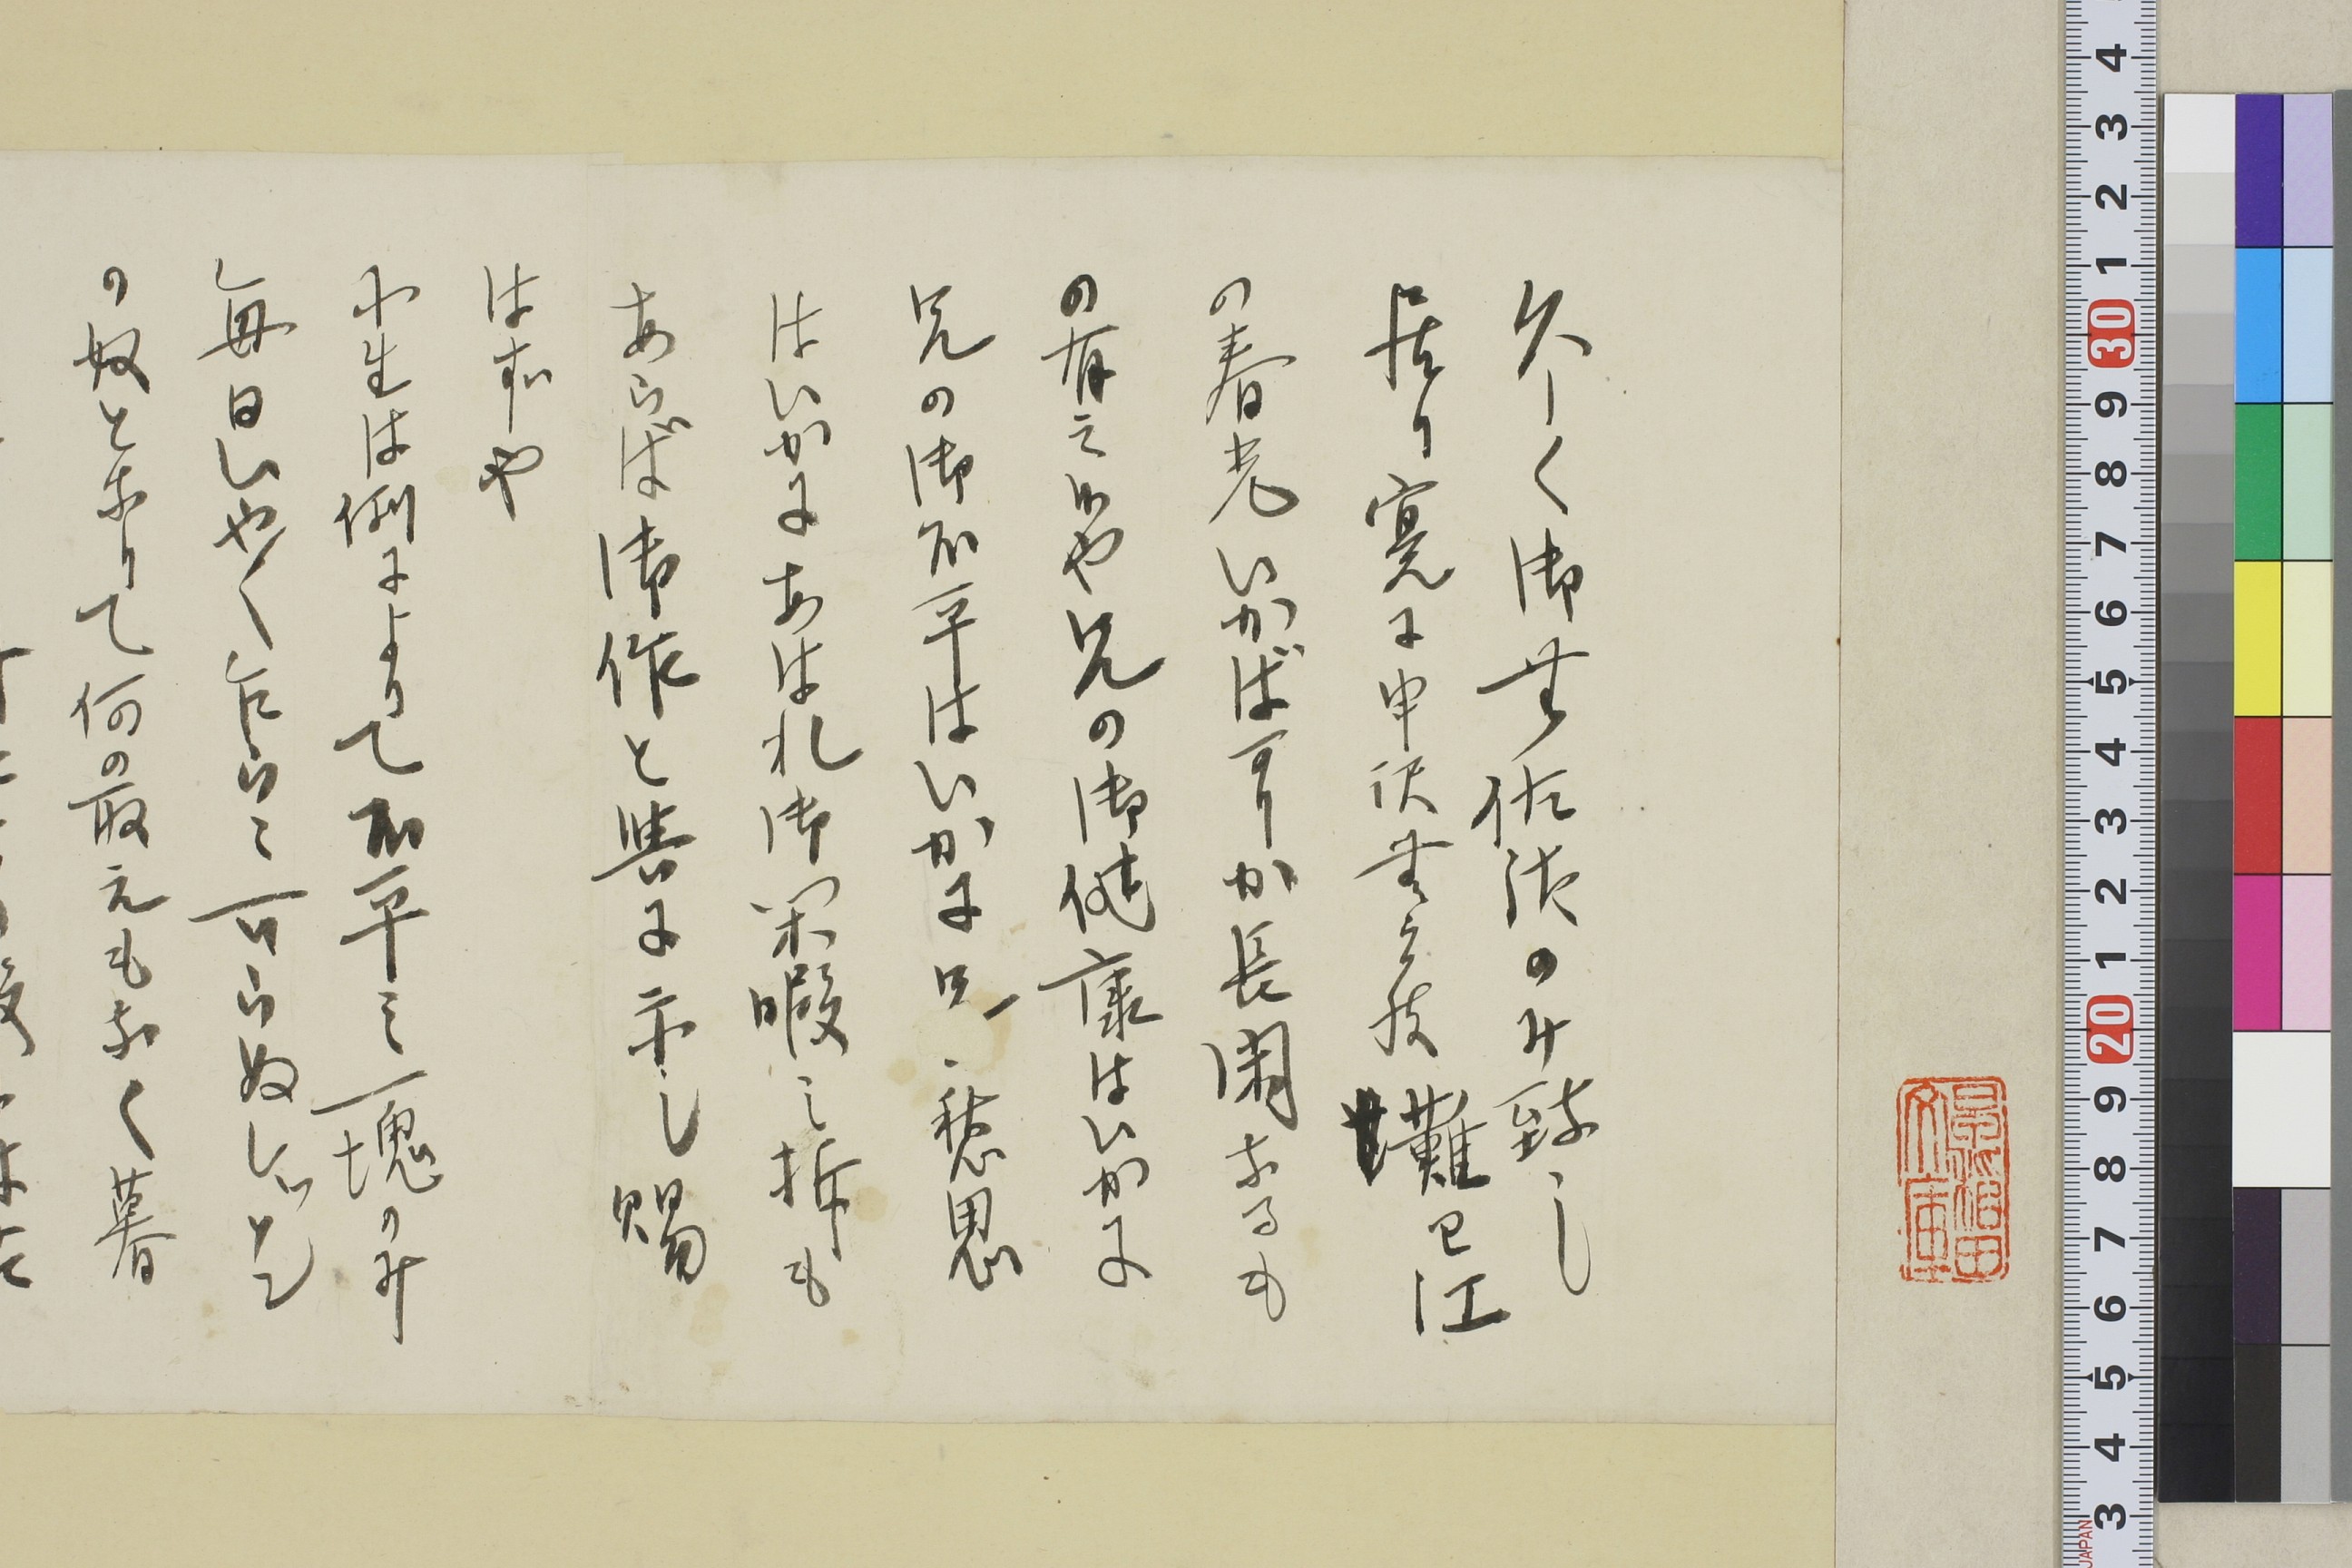 久しく御無佐汰のみ致し
居り寔に申訳無之候 灘巴江
の春光いかばかりか長閑なるも
の有之候や兄の御健康はいかに
兄の御不平はいかに兄の愁思
はいかにあはれ御閑暇之折も
あらば御作と共に示し賜
はずや
小生は例によりて不平之一塊のみ
毎日いやくならこ可らぬしごと
の奴となりて何の取えもなく暮
景福田文庫